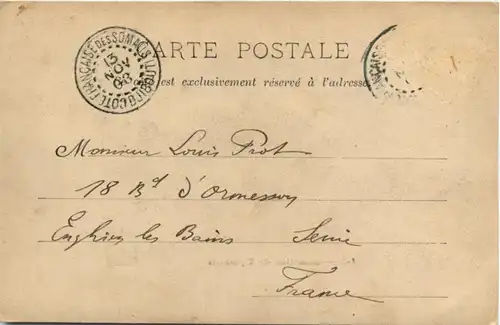 CARTE POSTALE
DJIBOUTI CÔTE FRANÇAISE DES SOMALIS
13
NOV
03
est exclusivement réservé à l'adresse
Monsieur Louis Prot
18 Bd d'Ormesson
Enghien les Bains Seine
France